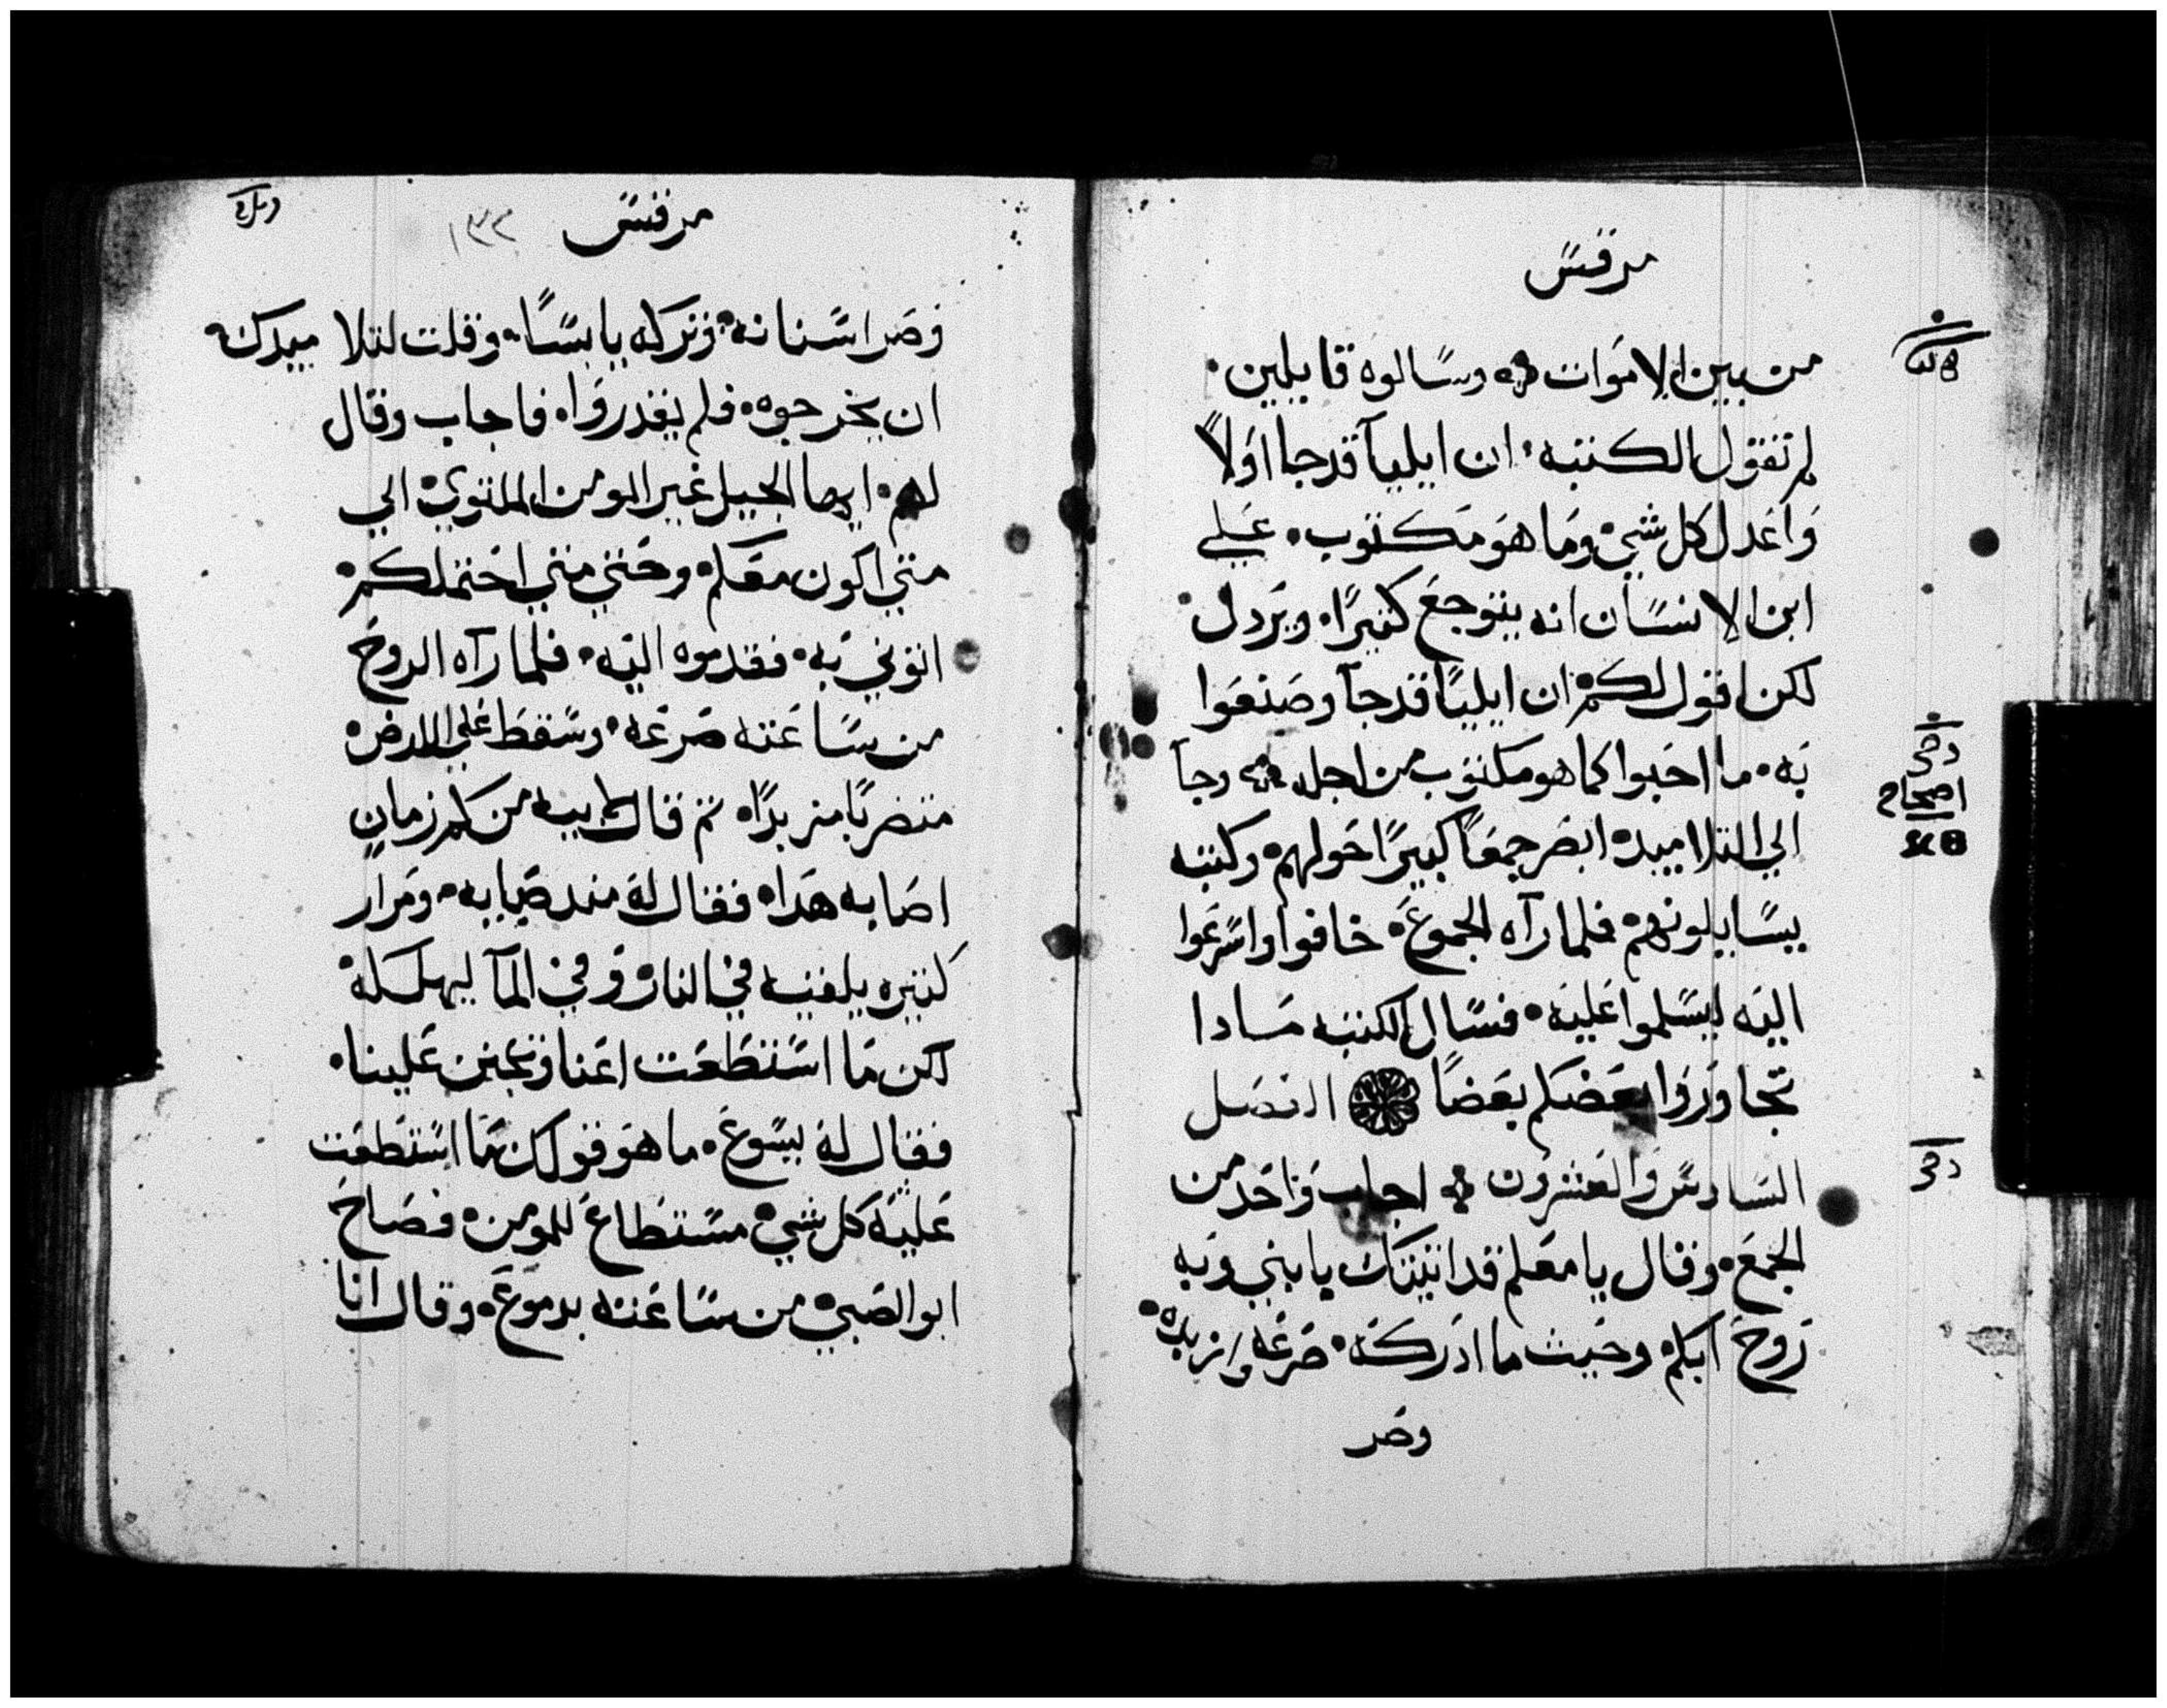 مرقس
من بين الاموات وسالوه قايلين
لم تقول الكتبه ان ايليآ قد جا اولاً
واعدل كل شي وما هو مكتوب على
ابن الانسان انه يتوجع كثيراً ويردل
لكن اقول لكم ان ايليا قد جآ وصنعوا
به ما احبوا كما هو مكتوب من اجله وجآ
الي التلاميد ابصر جمعاً كبيراً حولهم وكتبه
يسايلونهم فلما رآه الجموع خافوا واسرعوا
اليه ليسلموا عليه فسال الكتبه مادا
تجاوروا بعضكم بعضاً الفصل
السادس والعشرون اجاب واحد من
الجمع وقال يا معلم قد اتيتك يا بني وبه
روح ابكم وحيث ما ادركه صرعه وازبده
وصر
اصحاح
مرقس
١٣٢
وصر اسنانه وتركه يابساً وقلت لتلاميدك
ان يخرجوه فلم يقدروا فاجاب وقال
لهم ايها الجيل غير المومن الملتوي الي
متي اكون معكم وحتي متي احتملكم
اتوني به فقدموه اليه فلما رآه الروح
من ساعته صرعه وسقط علي الارض
متضربا مزبداً تم قال لابيه من كم زمان
اصابه هدا فقال له مند صبابه ومرار
كتيره يلقيه في النار وفي المآ ليهلكه
لكن ما استطعت اعنا وتحنن علينا
فقال له يسوع ما هو قولك ما استطعت
عليه كل شي مستطاع للمومن فصاح
ابو الصبي من ساعته بدموع وقال انا